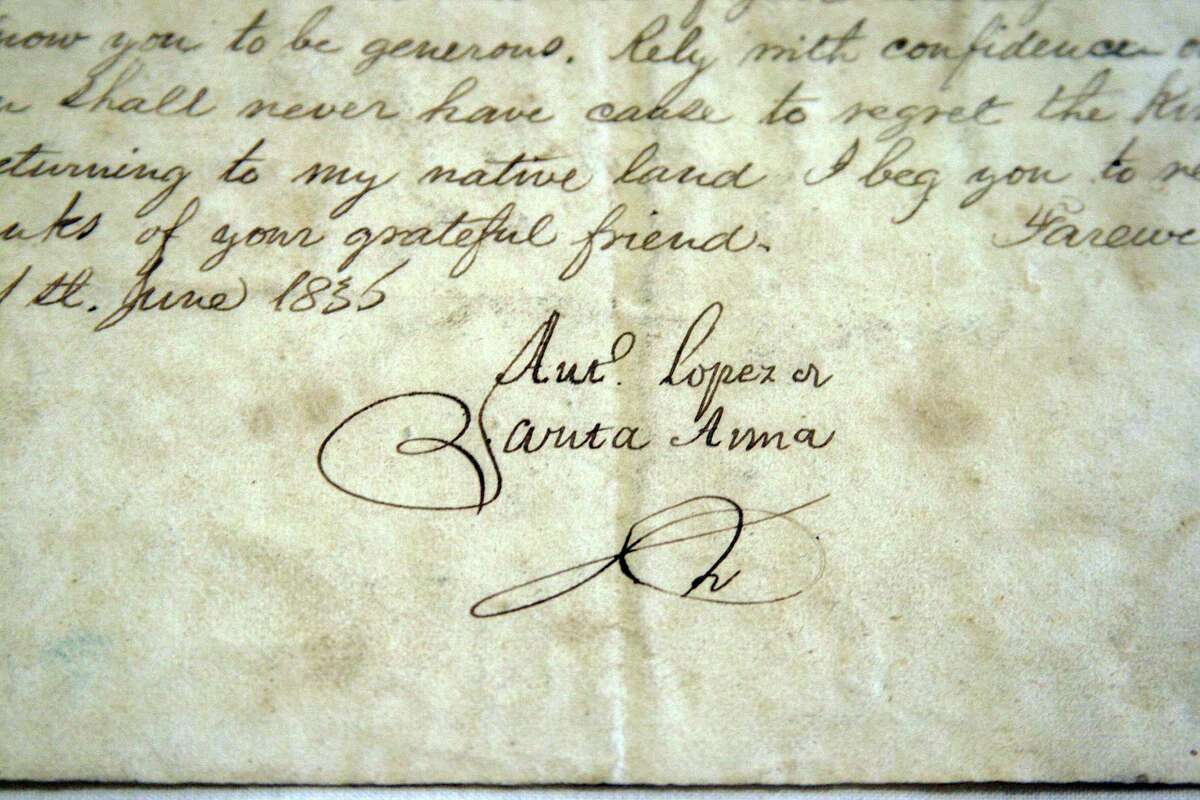 now you to be generous. Rely with confidence
shall never have cause to regret the
eturning to my native land I beg you to re
nks of your grateful friend. Farewe
1 st. June 1836
Anto. Lopez de
Santa Anna